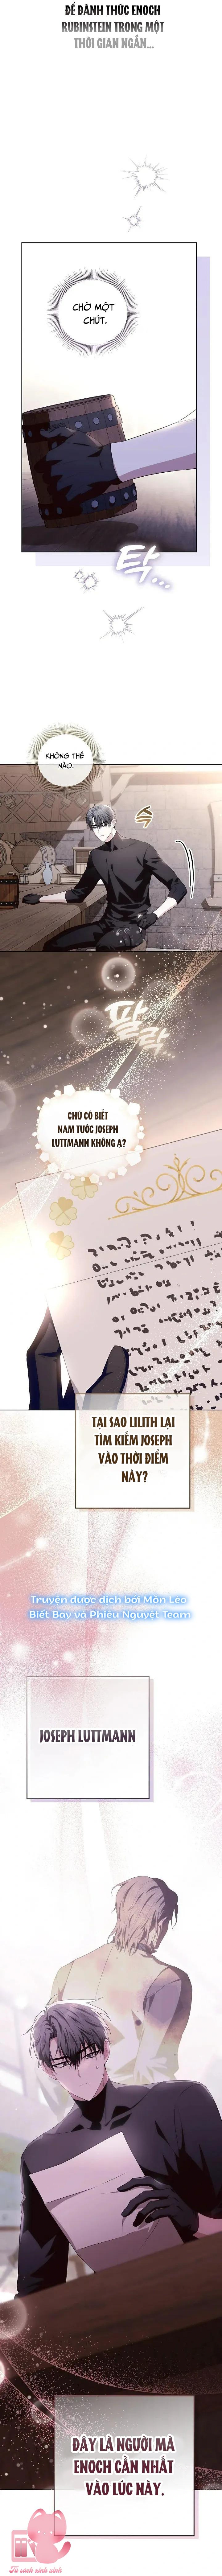 ĐỂ ĐÁNH THỨC ENOCH
RUBINSTEIN TRONG MỘT
THỜI GIAN NGẮN...
CHỜ MỘT
CHÚT.
탁...
KHÔNG THỂ
NÀO.
팔락
CHÚ CÓ BIẾT
NAM TƯỚC JOSEPH
LUTTMANN KHÔNG Ạ?
TẠI SAO LILITH LẠI
TÌM KIẾM JOSEPH
VÀO THỜI ĐIỂM
NÀY?
Truyện được dịch bởi Môn Lèo
Biết Bay và Phiêu Nguyệt Team
JOSEPH LUTTMANN
ĐÂY LÀ NGƯỜI MÀ
ENOCH CẦN NHẤT
VÀO LÚC NÀY.